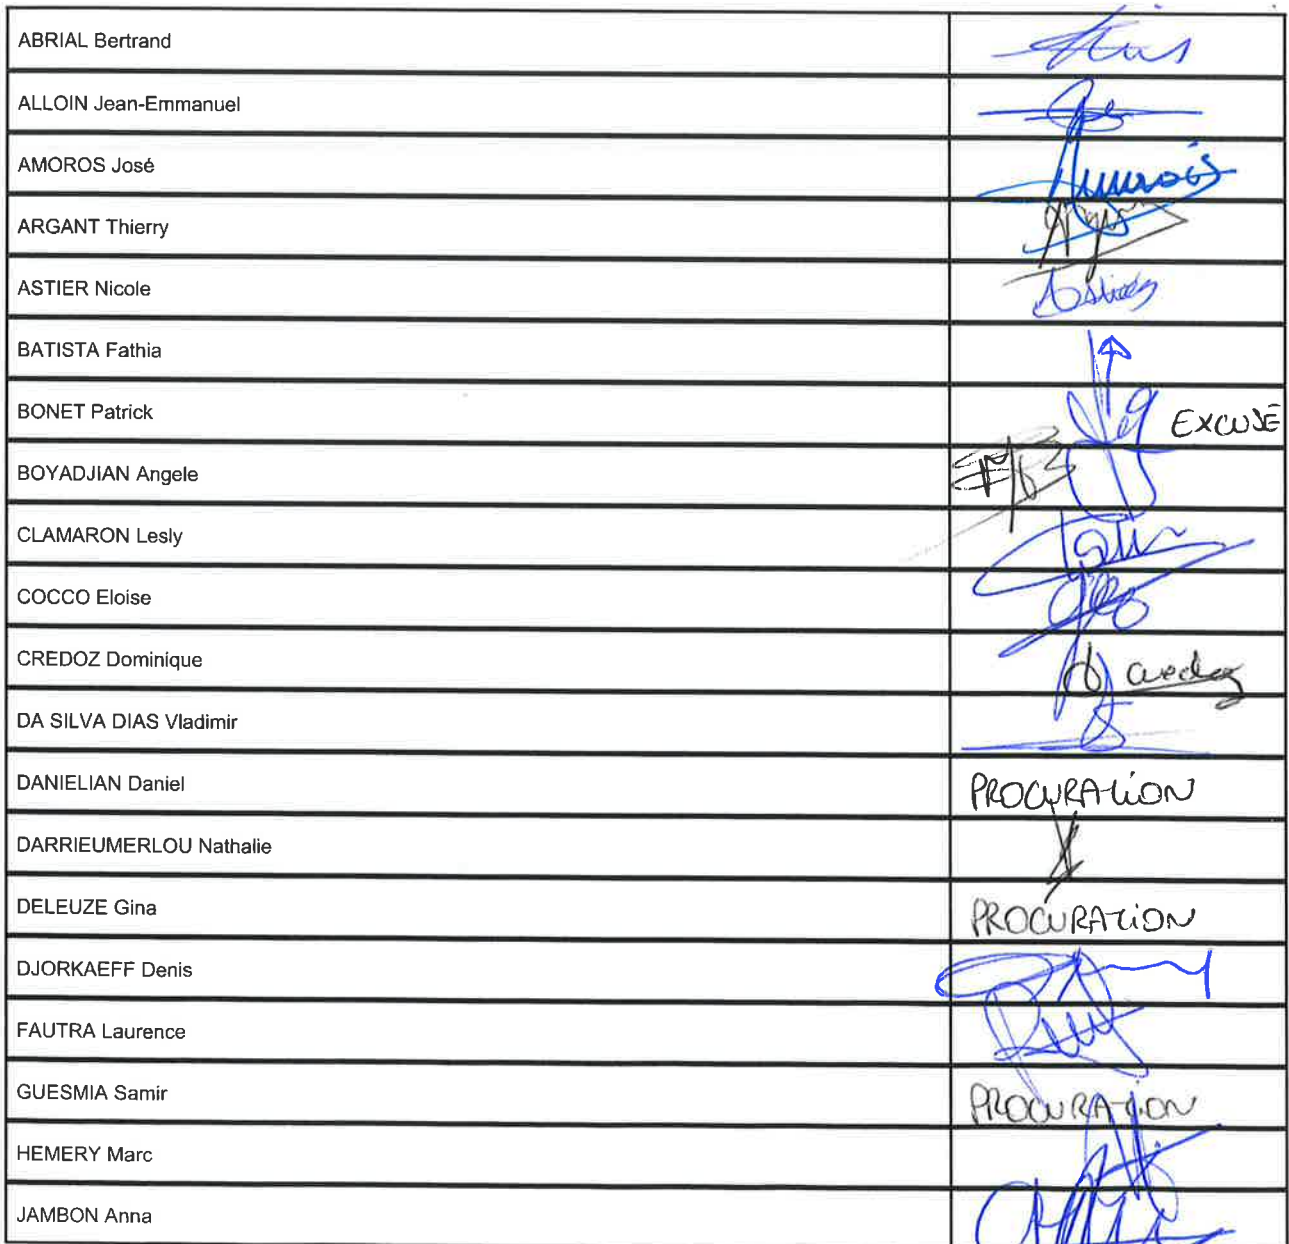 ABRIAL Bertrand
ALLOIN Jean-Emmanuel
AMOROS José
ARGANT Thierry
ASTIER Nicole
BATISTA Fathia
BONET Patrick EXCUSÉ
BOYADJIAN Angele
CLAMARON Lesly
COCCO Eloise
CREDOZ Dominique
DA SILVA DIAS Vladimir
DANIELIAN Daniel PROCURATION
DARRIEUMERLOU Nathalie
DELEUZE Gina PROCURATION
DJORKAEFF Denis
FAUTRA Laurence
GUESMIA Samir PROCURATION
HEMERY Marc
JAMBON Anna